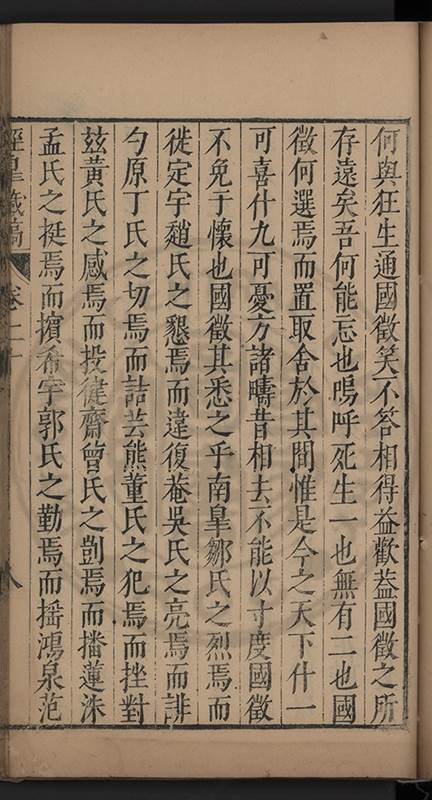 何與狂生通國徵笑不答相得益歡葢國徵之所
存遠矣吾何能忘也嗚呼死生一也無有二也國
徵何選焉而置取舍於其間惟是今之天下什一
可喜什九可憂方諸疇昔相去不能以寸度國徵
不免于懷也國徵其悉之乎南臯鄒氏之烈焉而
徙定宇趙氏之懇焉而違復菴吳氏之亮焉而誹
勺原丁氏之切焉而詰芸熊董氏之犯焉而挫對
玆黃氏之感焉而投健齋曾氏之剴焉而播蓮洙
孟氏之挺焉而擯希宇郭氏之勤焉而揺鴻泉范
涇臯藏稿 卷二十 八